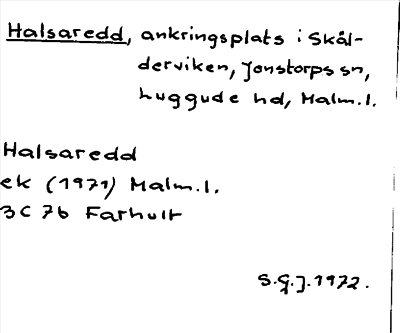 Halsaredd, ankringsplats i Skäl-
derviken, Jonstorps sn,
Luggude hd, Malm.l.
Halsaredd
ek (1971) Malm.l.
3C 7b Farhult
S.G.J. 1972.